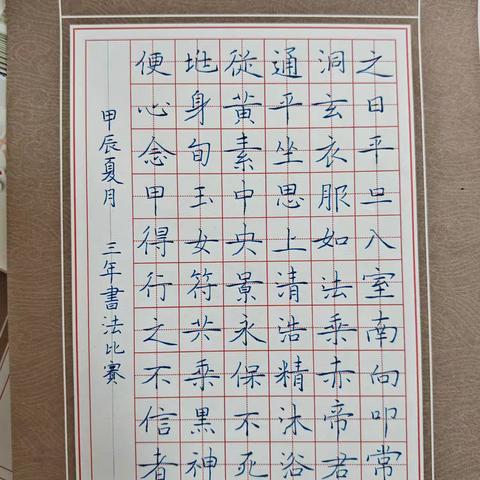 之日平旦入室南向叩常
洞玄衣服如法乘赤帝君
通平坐思上清浩精沐浴
從黃素中央景永保不死
地身旬玉女符共乘黑神
便心念甲得行之不信者
甲辰夏月 三年書法比賽